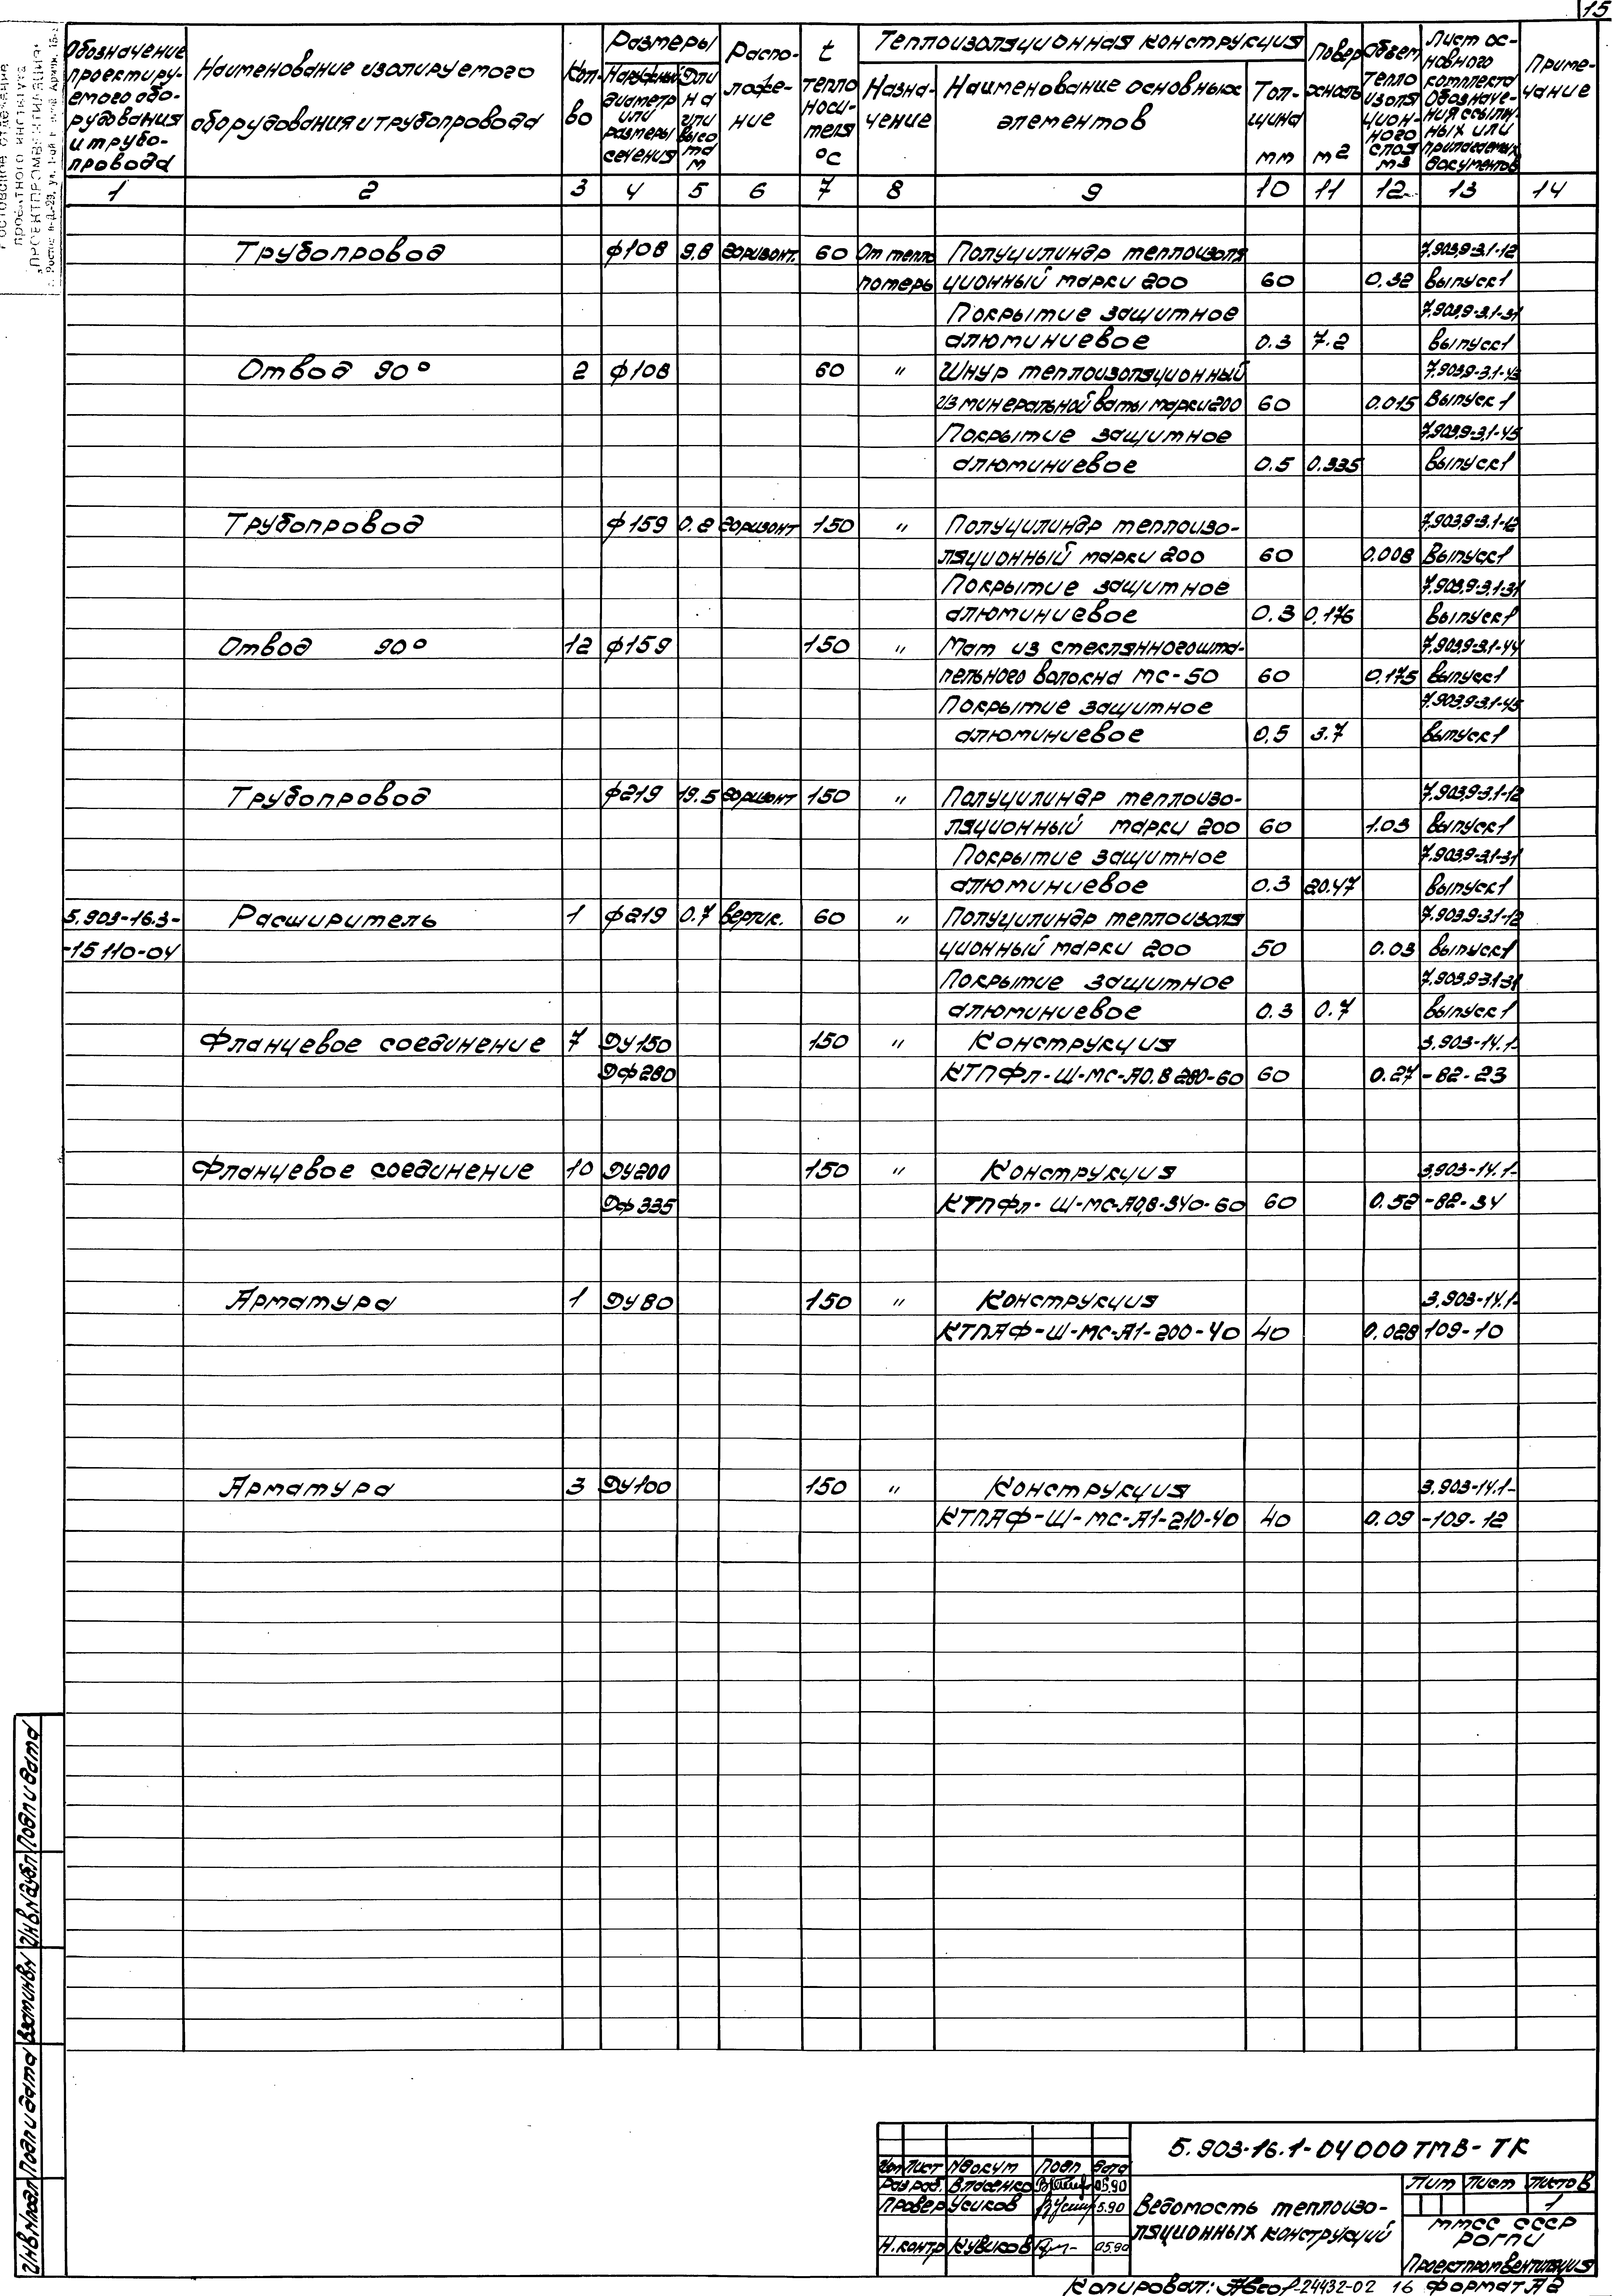 15
Обозначение проектируемого оборудования и трубопровода
Наименование изолируемого оборудования и трубопровода
Кол-во
Размеры
Наружный диаметр или размеры сечения
Длина или высота м
Расположение
t теплоносителя °С
Теплоизоляционная конструкция
Назначение
Наименование основных элементов
Толщина мм
Поверхность м2
Объем теплоизоляционного слоя м3
Лист основного комплекта Обозначения ссылочных или прилагаемых документов
Примечание
1 2 3 4 5 6 7 8 9 10 11 12 13 14
Трубопровод ф108 9.8 горизонт. 60 От тепло Полуцилиндр теплоизоля 7.903.9-3.1-12
потерь ционный марки 200 60 0.32 выпуск1
Покрытие защитное 7.903.9-3.1-31
алюминиевое 0.3 7.2 выпуск1
Отвод 90° 2 ф108 60 " Шнур теплоизоляционный 7.903.9-3.1-43
из минеральной ваты марки 200 60 0.015 выпуск 1
Покрытие защитное 7.903.9-3.1-45
алюминиевое 0.5 0.335 выпуск1
Трубопровод ф159 0.2 горизонт 150 " Полуцилиндр теплоизо- 7.903.9-3.1-12
ляционный марки 200 60 0.008 Выпуск1
Покрытие защитное 7.903.9-3.1-31
алюминиевое 0.3 0.176 выпуск1
Отвод 90° 12 ф159 150 " Мат из стеклянного шта- 7.903.9-3.1-44
пельного волокна МС-50 60 0.175 выпуск1
Покрытие защитное 7.903.9-3.1-45
алюминиевое 0,5 3.7 выпуск1
Трубопровод ф219 19.5 горизонт 150 " Полуцилиндр теплоизо- 7.903.9-3.1-12
ляционный марки 200 60 1.03 выпуск1
Покрытие защитное 7.903.9-3.1-31
алюминиевое 0.3 20.47 выпуск1
5.903-16.3- Расширитель 1 ф219 0.7 вертик. 60 " Полуцилиндр теплоизоля 7.903.9-3.1-12
-15 110-04 ционный марки 200 50 0.03 выпуск1
Покрытие защитное 7.903.9-3.1-31
алюминиевое 0.3 0.7 выпуск1
Фланцевое соединение 7 Ду150 150 " Конструкция 3.903-14.1-
Дф280 КТПФл-Ш-МС-А0.8 280-60 60 0.27 -82-23
Фланцевое соединение 10 Ду200 150 " Конструкция 3.903-14.1-
Дф335 КТПФл-Ш-МС-А0,8-340-60 60 0.52 -82-34
Арматура 1 Ду80 150 " Конструкция 3.903-14.1-
КТПАФ-Ш-МС-А1-200-40 40 0.028 109-10
Арматура 3 Ду100 150 " Конструкция 3.903-14.1-
КТПАФ-Ш-МС-А1-210-40 40 0.09 -109-12
Инв.№подл Подп и дата Взам инв№ Инв№дубл Подп и дата
5.903-16.1-04000ТМВ-ТК
Изм Лист №докум Подп Дата
Разраб. Власенко 05.90
Провер Усиков 5.90
Н.контр Кувиков 05.90
Ведомость теплоизо-
ляционных конструкций
Лит Лист Листов
1
ММСС СССР
РОГПИ
Проектпромвентиляция
Копировал: 24432-02 16 Формат А2